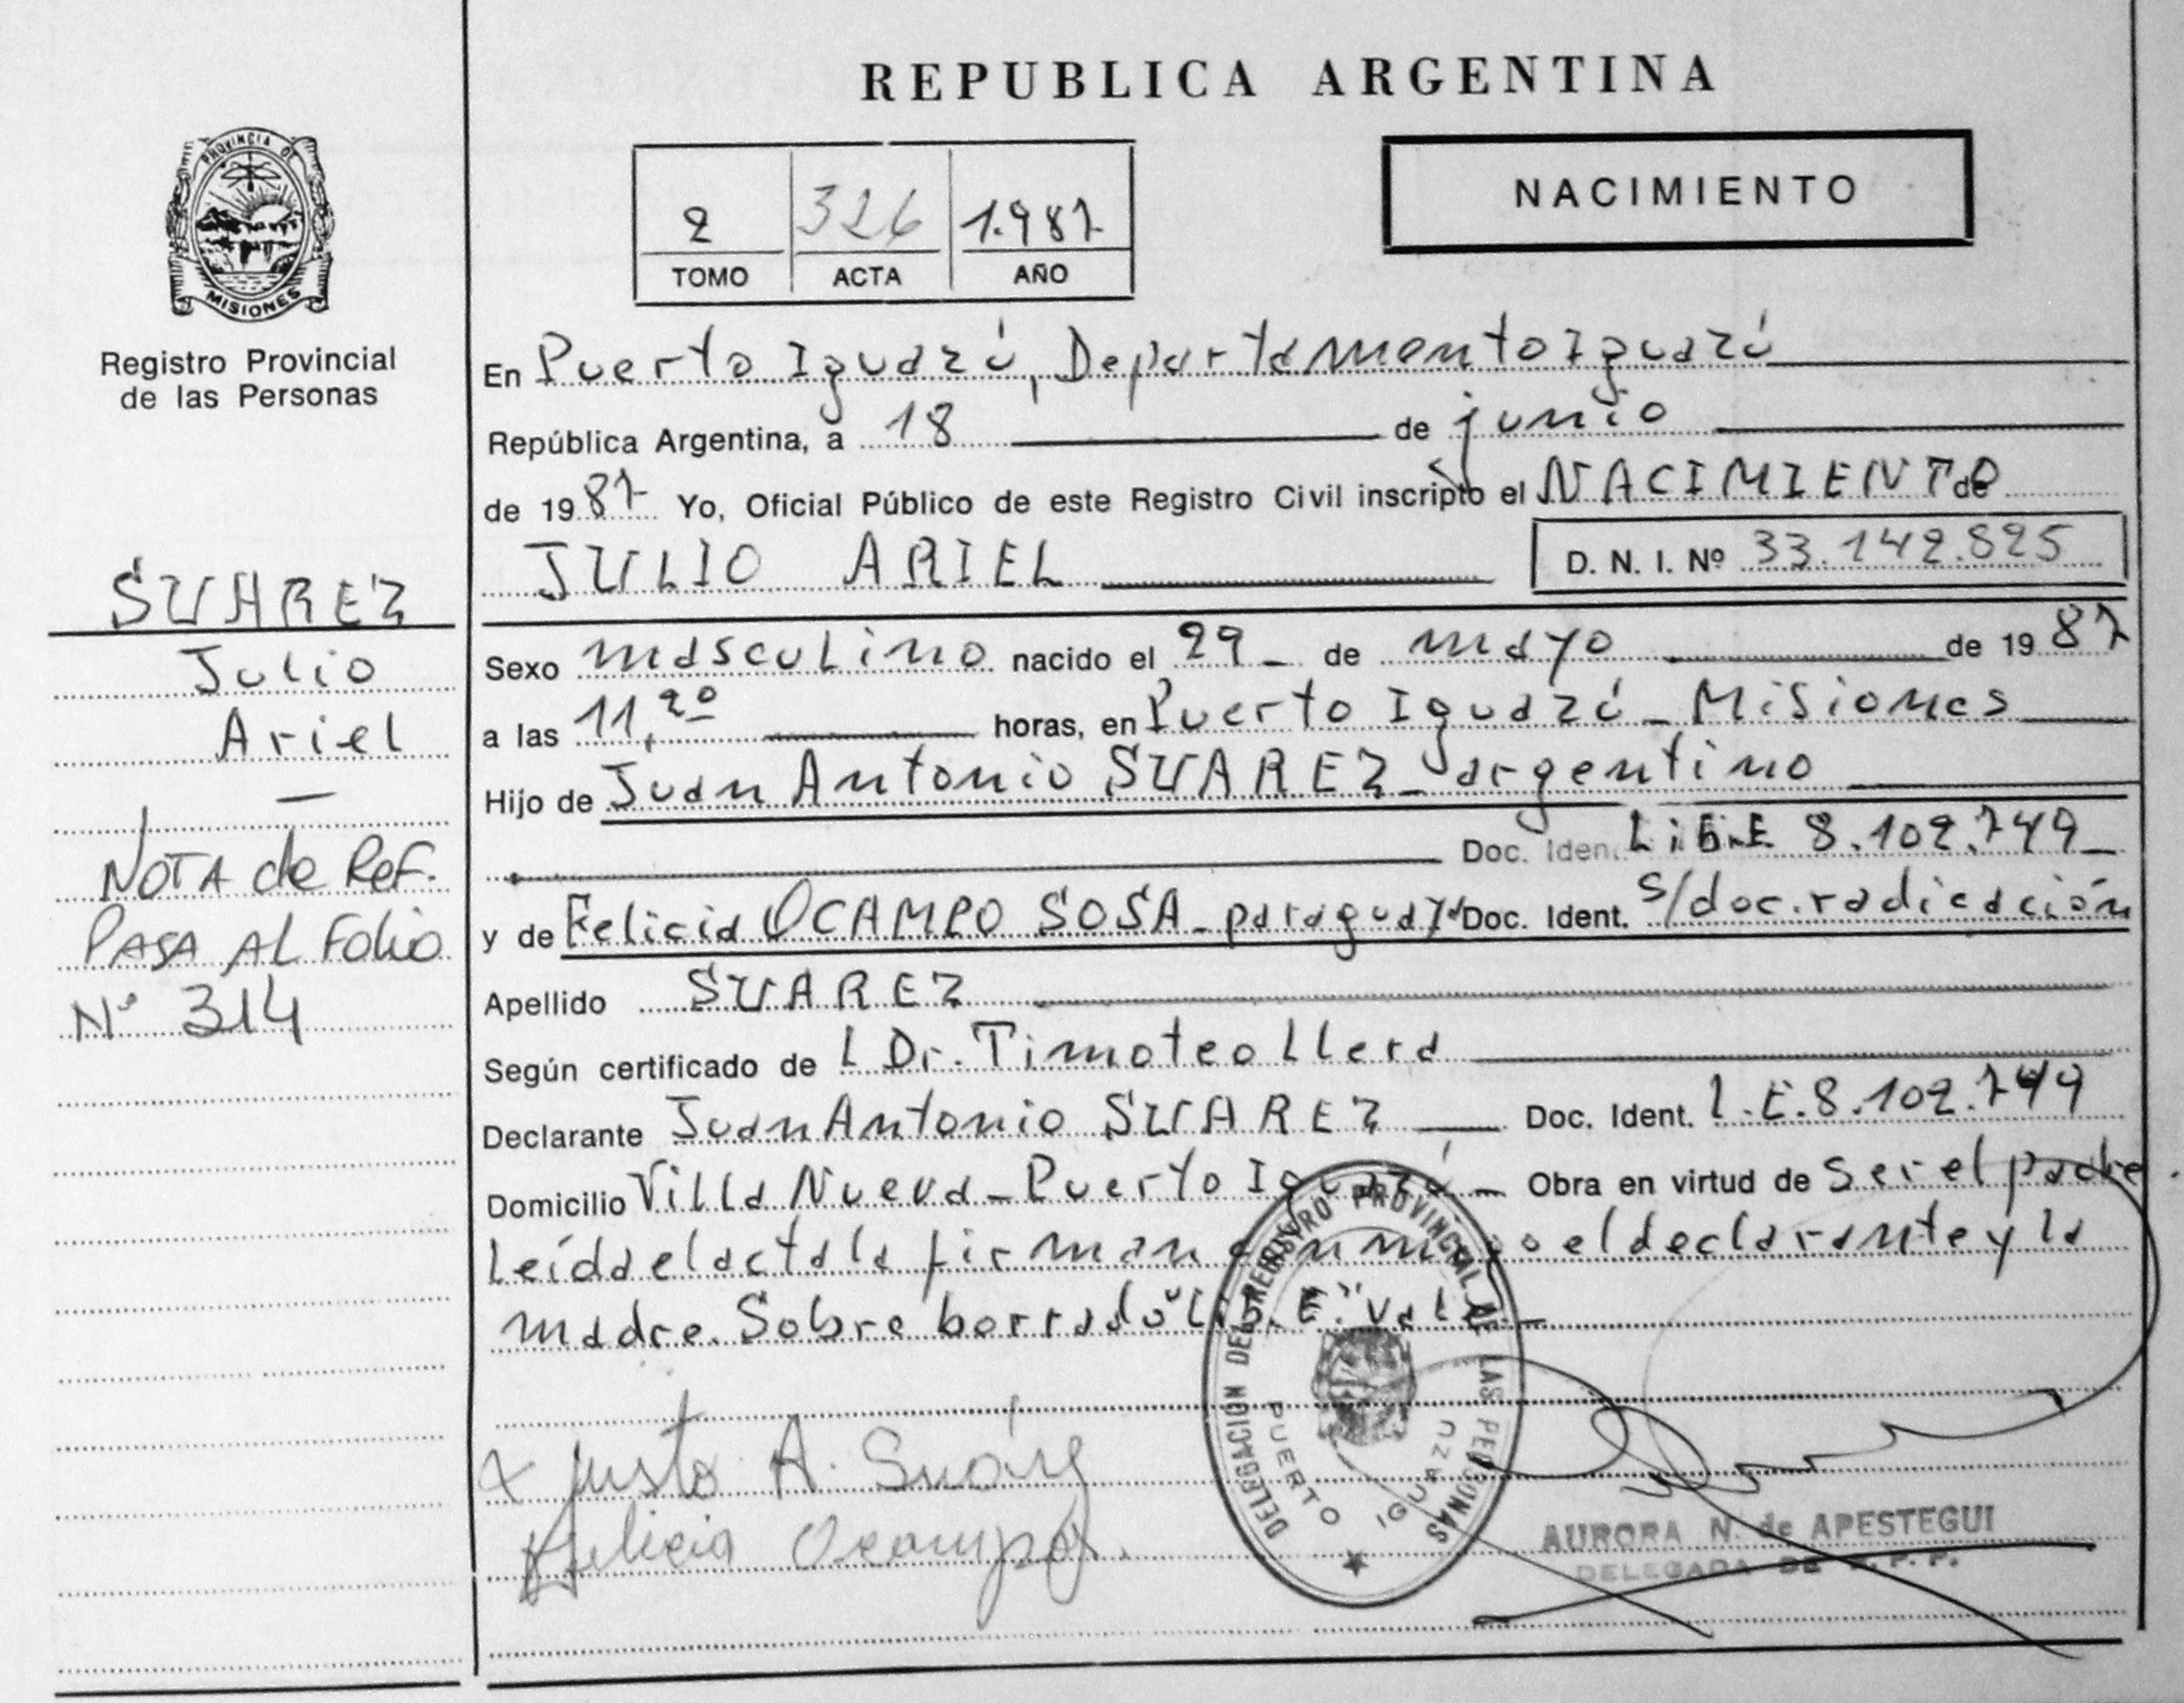 REPUBLICA ARGENTINA
PROVINCIA DE
MISIONES
Registro Provincial
de las Personas
2 326 1.987
TOMO ACTA AÑO
NACIMIENTO
En Puerto Iguazú, Departamento Iguazú
República Argentina, a 18 de junio
de 1987 Yo, Oficial Público de este Registro Civil inscripto el NACIMIENTO de
JULIO ARIEL D. N. I. Nº 33.142.825
SUAREZ
Julio
Ariel
NOTA de Ref.
PASA AL Folio
Nº 314
Sexo masculino nacido el 29 de mayo de 1987
a las 11,20 horas, en Puerto Iguazú - Misiones
Hijo de Juan Antonio SUAREZ - argentino
Doc. Iden. Lib.E. 8.102.749
y de Felicia OCAMPO SOSA - paraguaya Doc. Ident. s/doc. radicación
Apellido SUAREZ
Según certificado de l Dr. Timoteo Llera
Declarante Juan Antonio SUAREZ Doc. Ident. L.E. 8.102.749
Domicilio Villa Nueva - Puerto Iguazú - Obra en virtud de ser el padre.
Leída el acta la firman conmigo el declarante y la
madre. Sobre borrado "Lib. E." Vale.
DELEGACION DEL REGISTRO PROVINCIAL DE LAS PERSONAS
PUERTO IGUAZU
A. Suárez
Felicia Ocampo
AURORA N. de APESTEGUI
DELEGADA DE